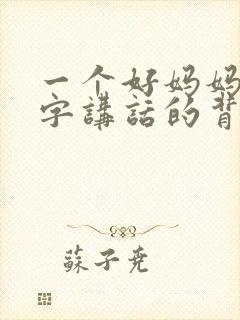 一个好妈妈
字講話的背
蘇子堯